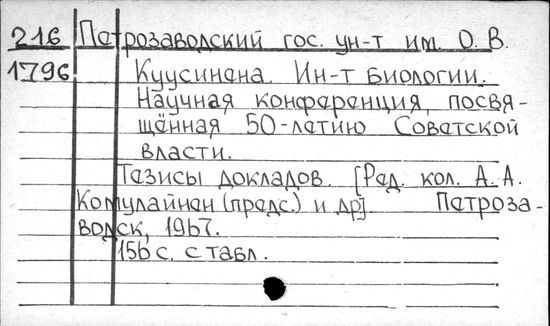 216 Петрозаводский гос. ун-т им. О. В.
1796 Куусинена. Ин-т биологии.
Научная конференция, посвя-
щённая 50-летию Советской
власти.
Тезисы докладов. [Ред. кол. А. А.
Комулайнен (предс.) и др] Петроза-
водск, 1967.
156 с. с табл.